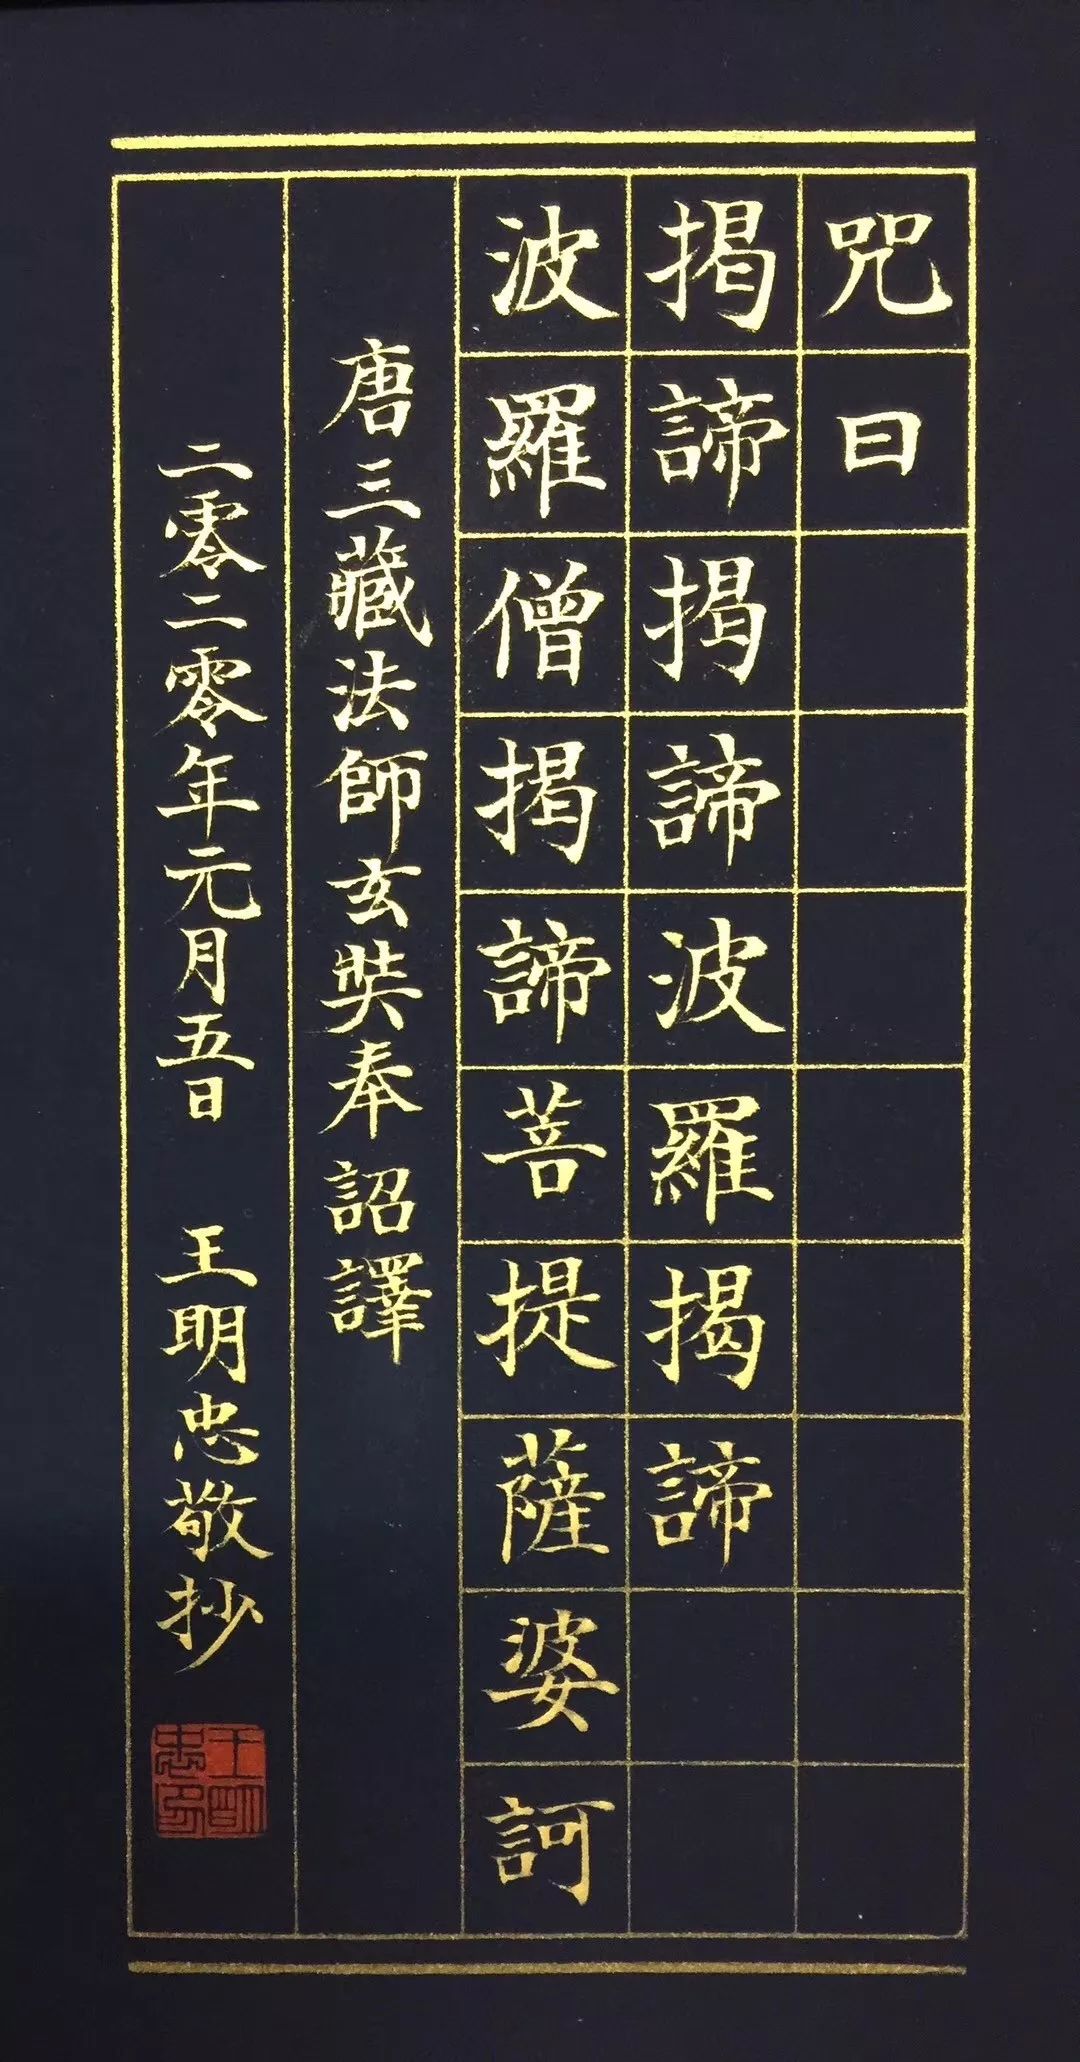 咒曰
揭諦揭諦波羅揭諦
波羅僧揭諦菩提薩婆訶
唐三藏法師玄奘奉詔譯
二零二零年元月五日 王明忠敬抄
王明忠印